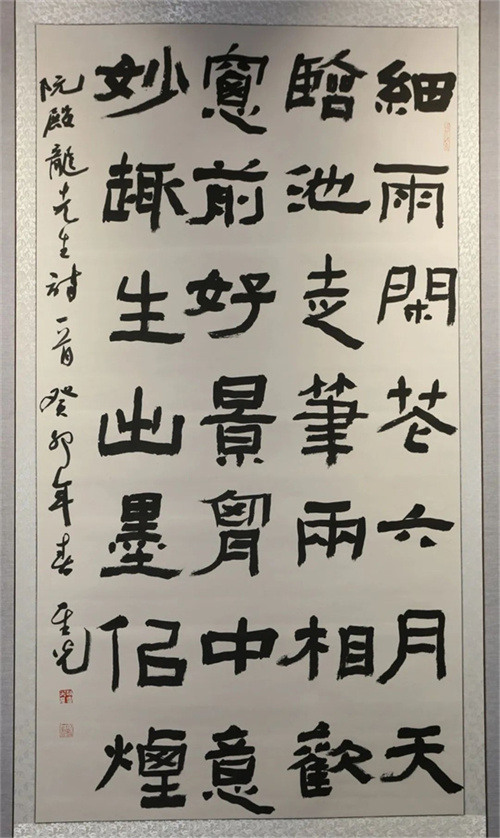 細雨閑花六月天
臨池走筆兩相歡
窻前好景胷中意
妙趣生出墨佀煙
阮殿龍先生詩一首 癸卯年春